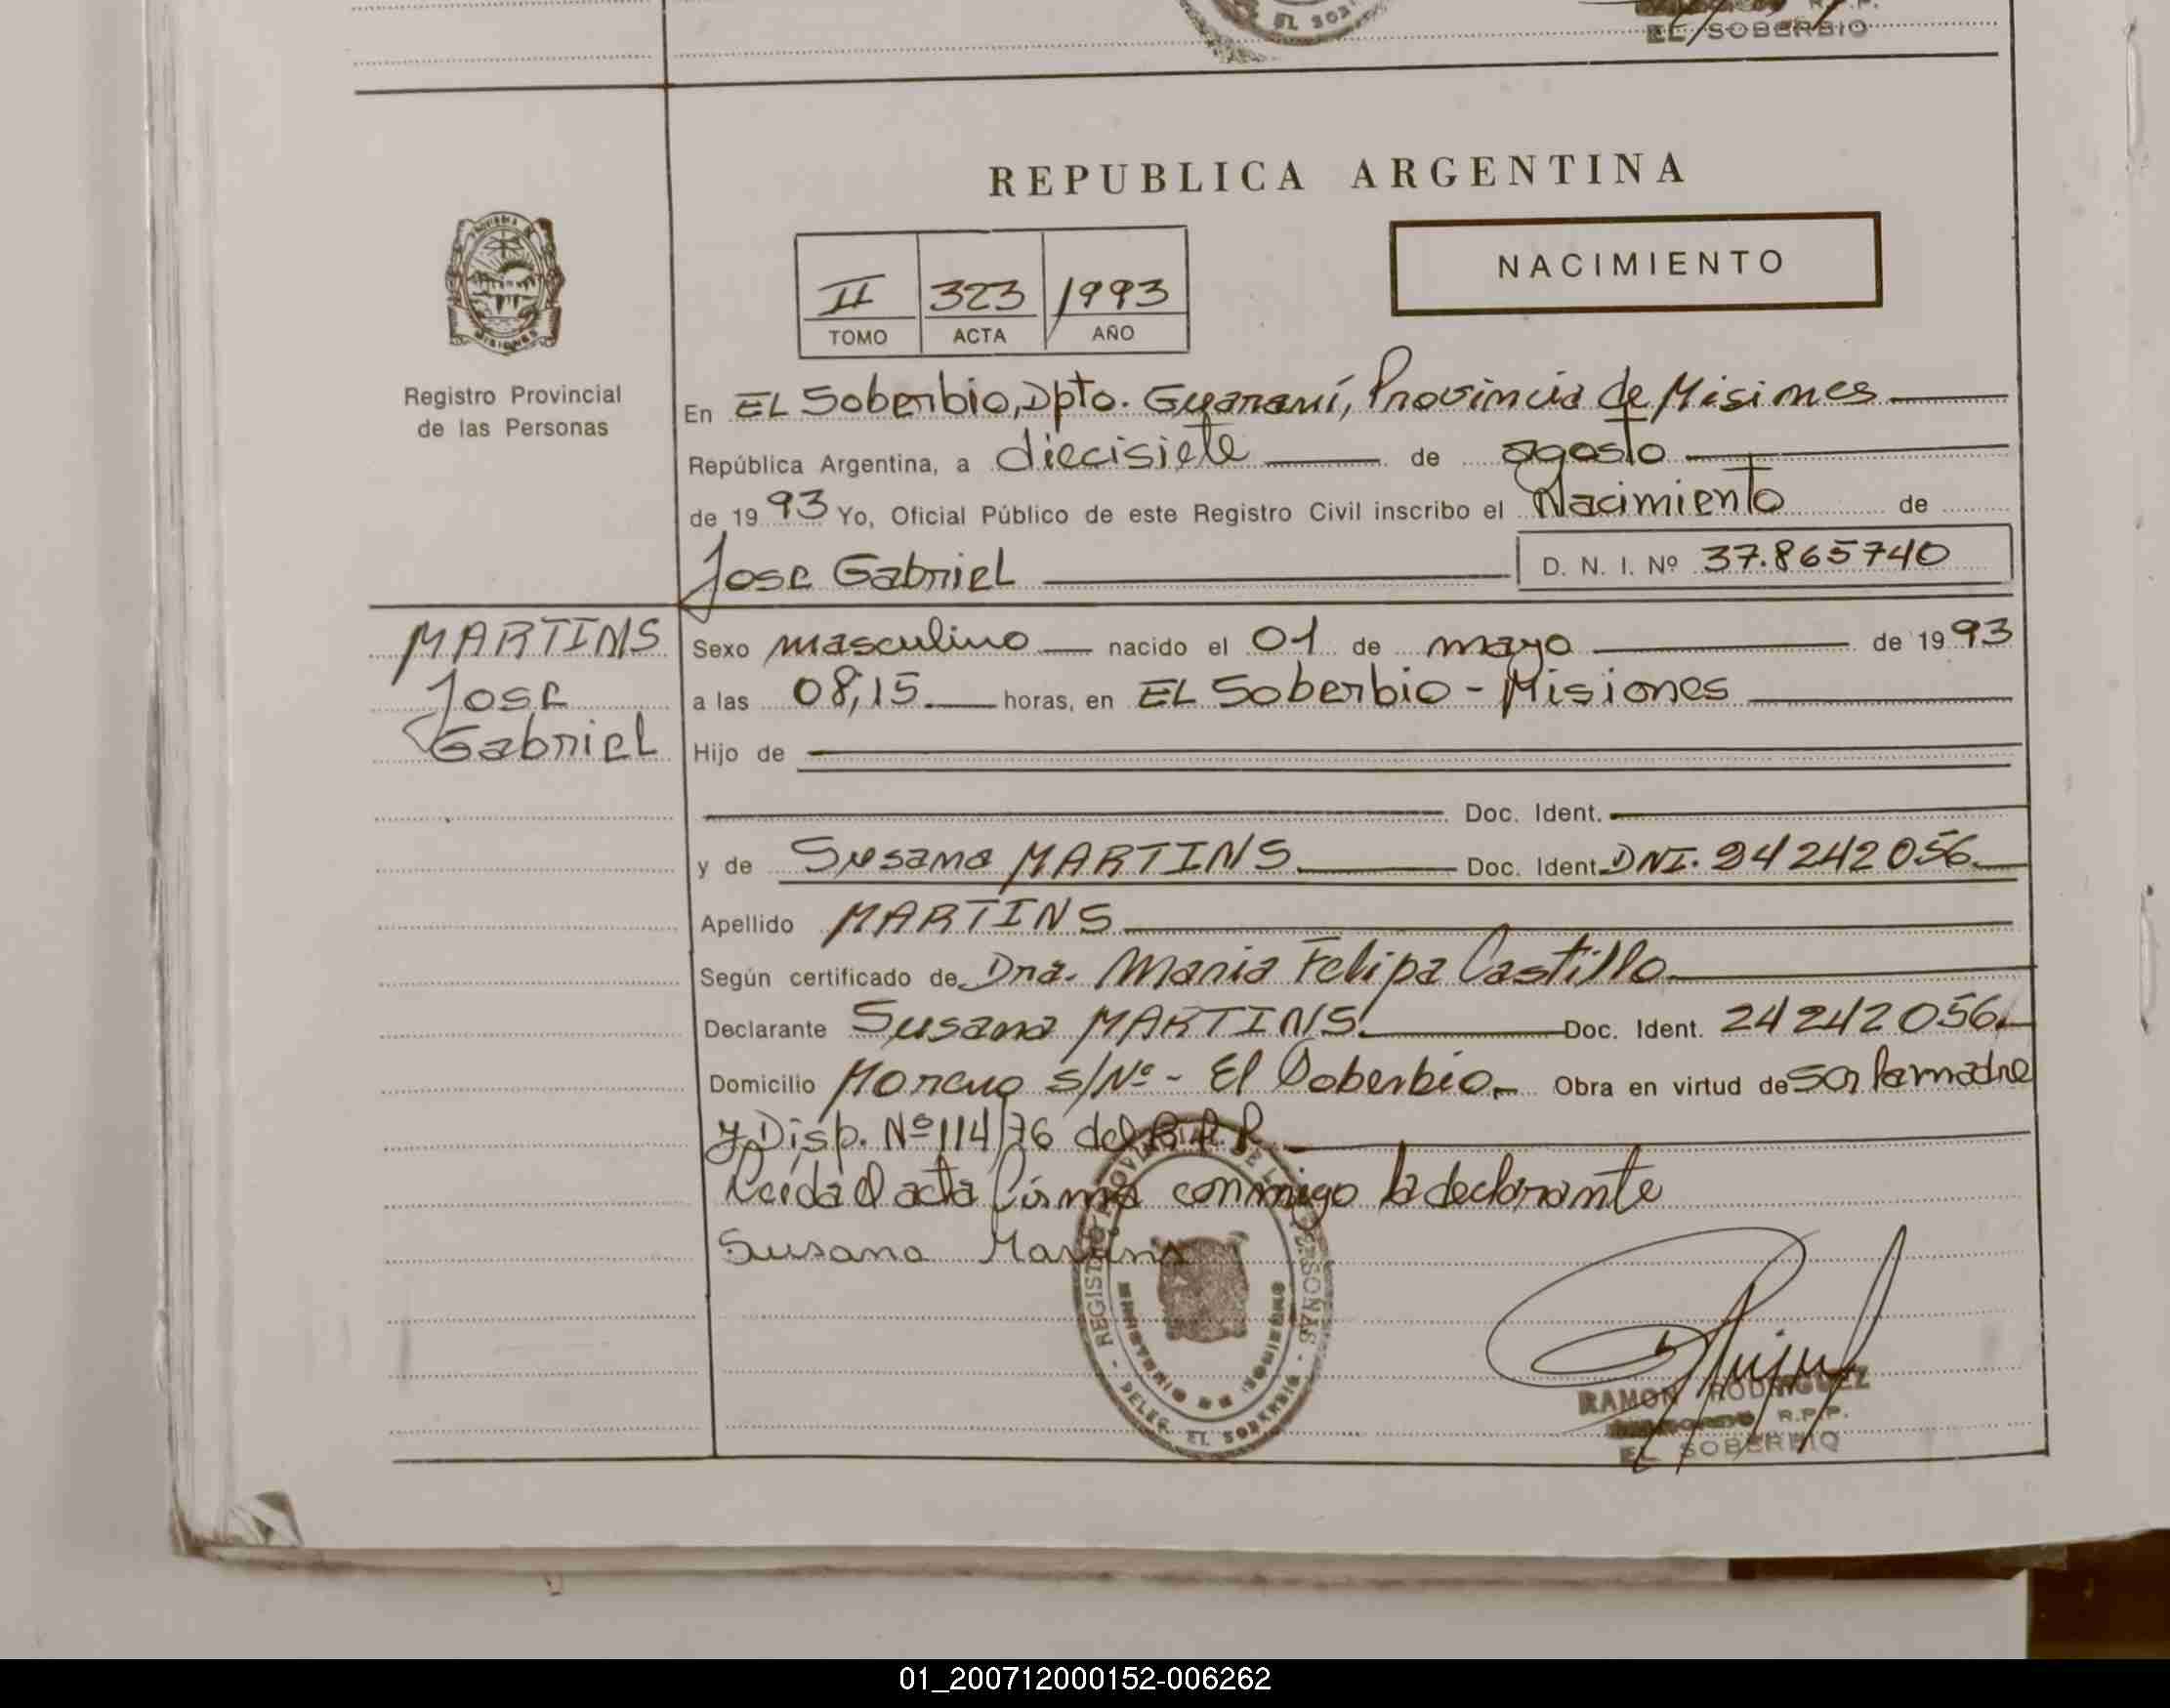 EL SOB
R.P.
EL SOBERBIO
REPUBLICA ARGENTINA
NACIMIENTO
II 323 1993
TOMO ACTA AÑO
MISIONES
Registro Provincial
de las Personas
En EL Soberbio, Dpto. Guaraní, Provincia de Misiones
República Argentina, a diecisiete de agosto
de 1993 Yo, Oficial Público de este Registro Civil inscribo el Nacimiento de
Jose Gabriel D. N. I. Nº 37.865740
MARTINS
Jose
Gabriel
Sexo masculino nacido el 01 de mayo de 1993
a las 08,15 horas, en EL Soberbio - Misiones
Hijo de
Doc. Ident.
y de Susana MARTINS Doc. Ident. DNI. 24242056
Apellido MARTINS
Según certificado de Dra. Maria Felipa Castillo
Declarante Susana MARTINS Doc. Ident. 24242056
Domicilio Moreno S/Nº - El Soberbio Obra en virtud de ser la madre
y Disp. Nº 114/76 del R.P.P.
Leida el acta firma conmigo la declarante
Susana Martins
REGISTRO PROVINCIAL DE LAS PERSONAS - DELEG. EL SOBERBIO -
MINISTERIO DE GOBIERNO
RAMON RODRIGUEZ
R.P.P.
EL SOBERBIO
01_200712000152-006262